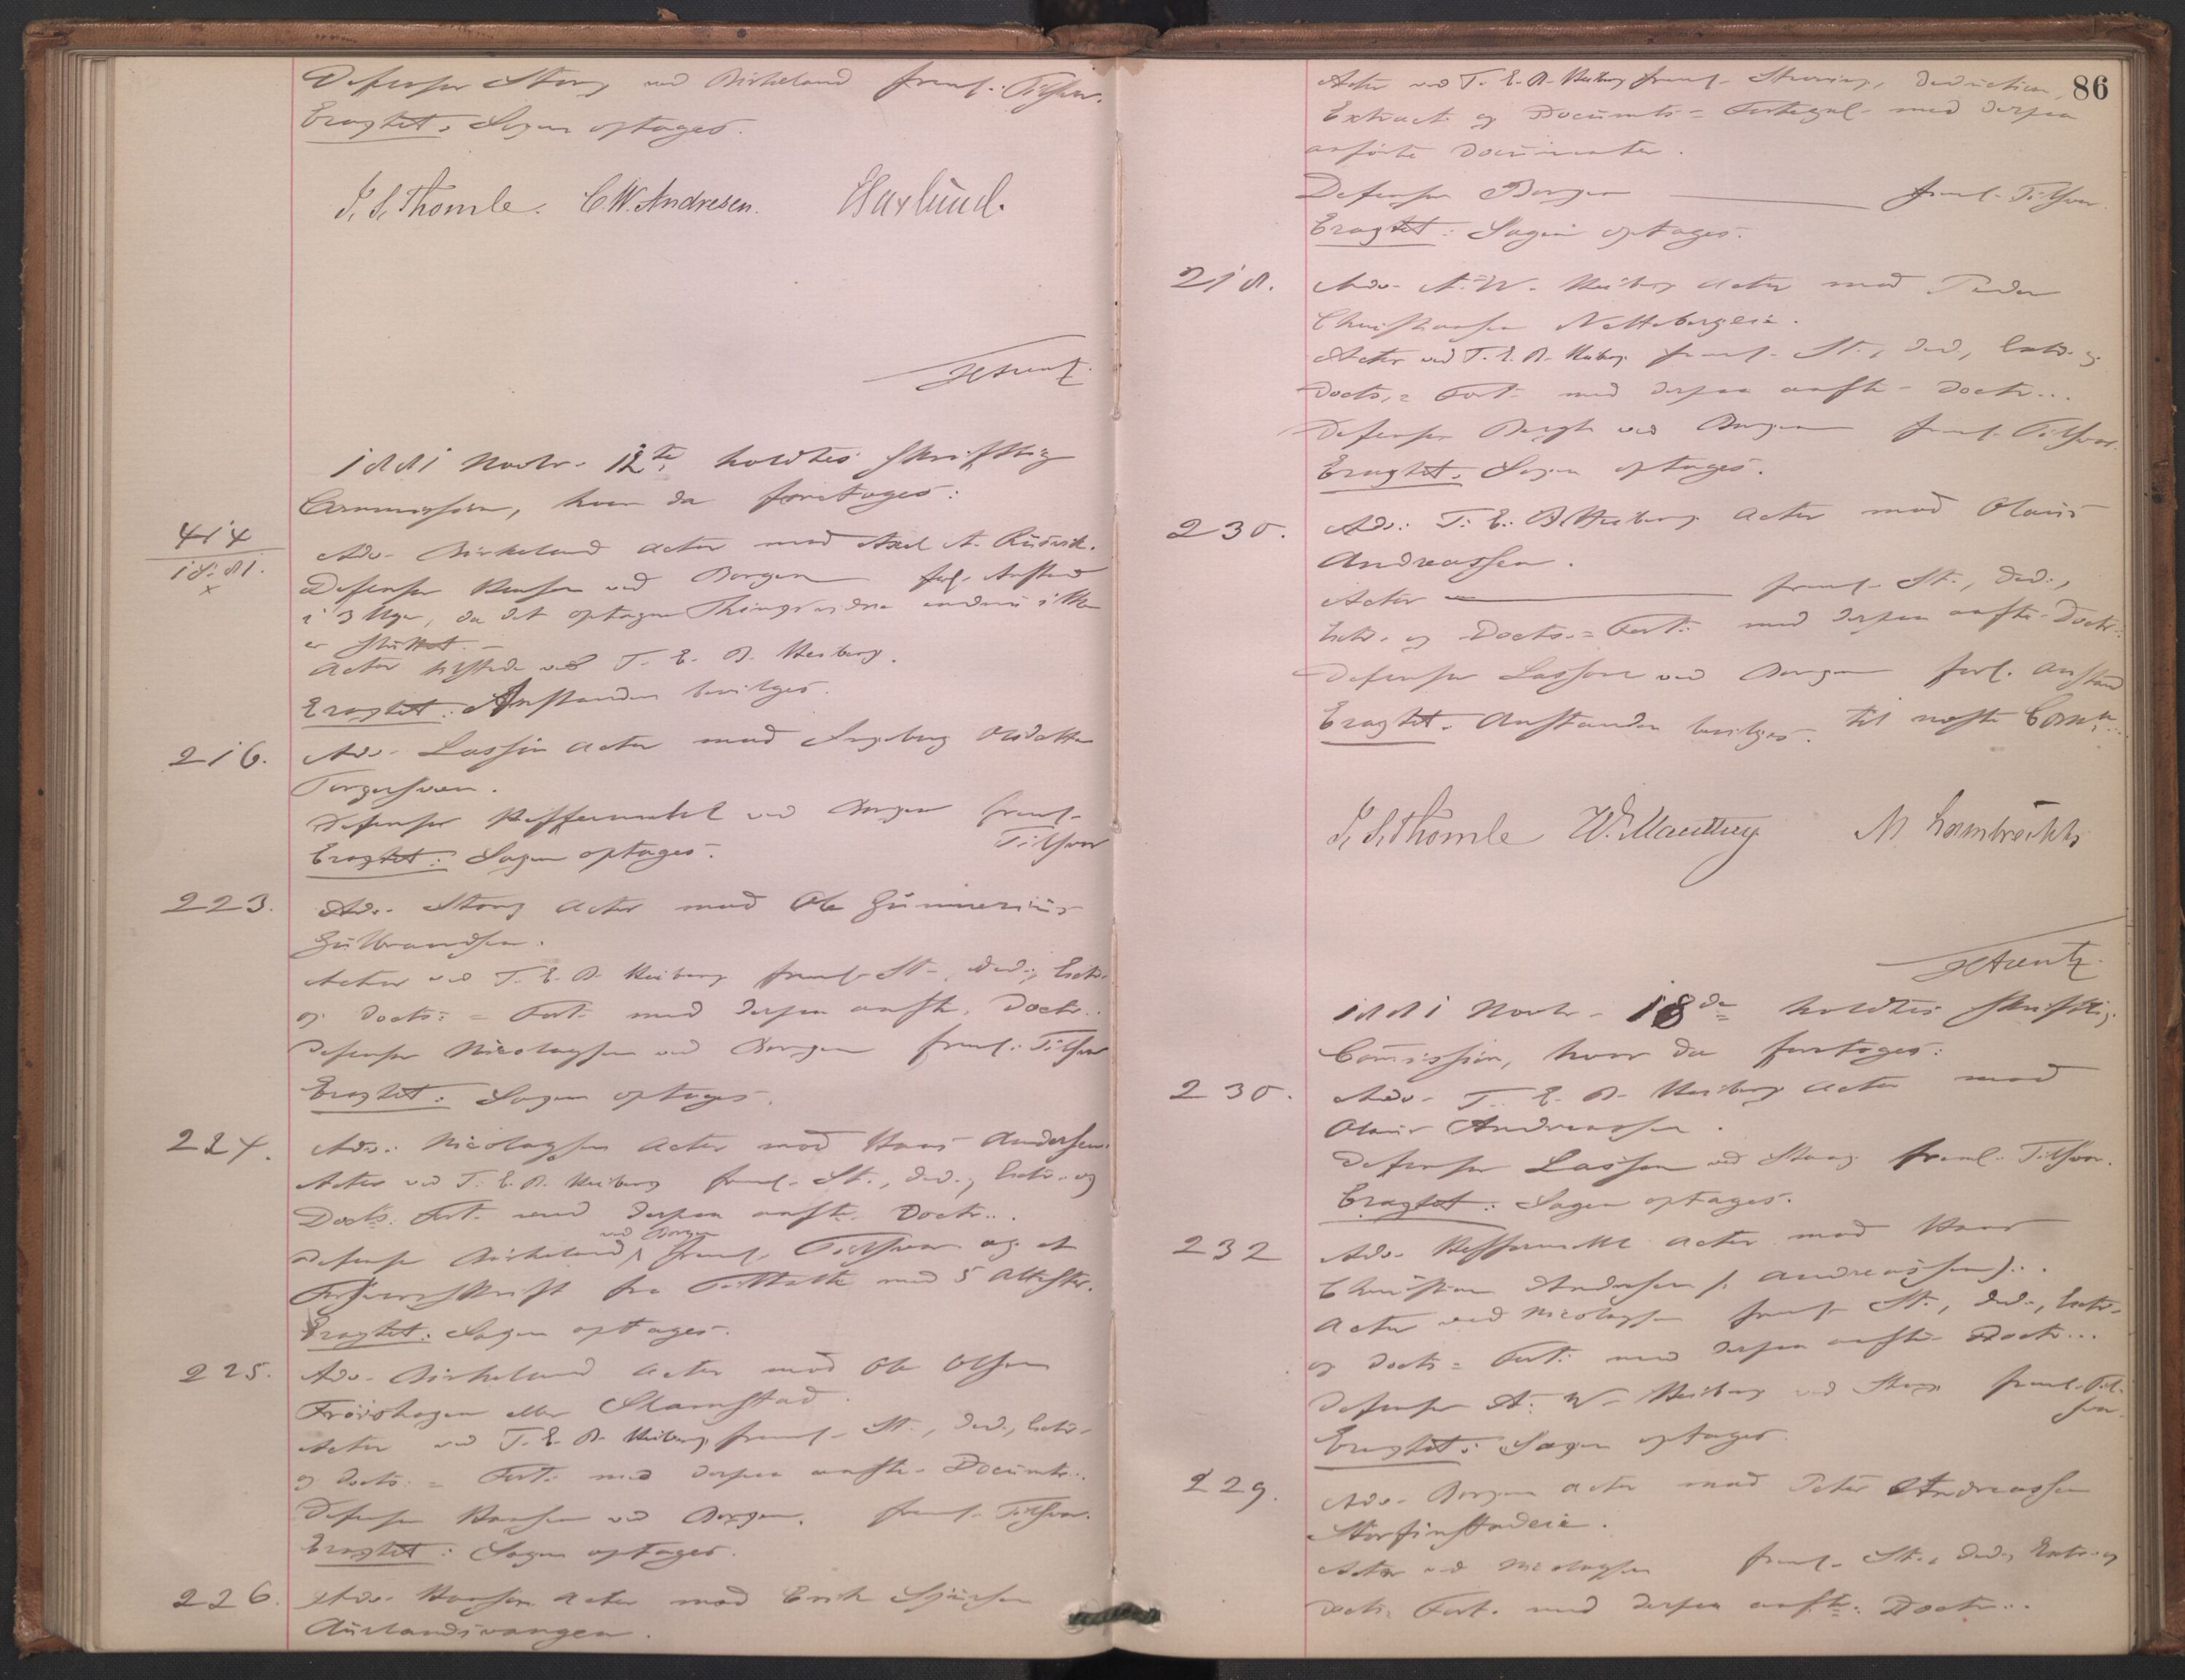 Defensor Stang ved Birkeland freml. Tilsvar.
Eragtet: Sagen optages.
J. S. Thomle. C W. Andresen. Haxlund.
1881 Novbr. 12te holdtes skriftlig
Commission, hvor da foretages:
414
1881.
Adv. Birkeland Actor mod Axel A.
Defensor Hansen ved Borgen forl. Anstand
i 3 Uger, da det optagne Thingsvidne endnu ikke
er sluttet. —
Actor tilstede ved T. E. B. Heiberg.
Eragtet: Anstanden bevilges.
216. Adv. Lasson Actor mod Ingeborg
Torgersen.
Defensor Heffermehl ved Borgen freml.
Tilsvar
Eragtet: Sagen optages.
223. Adv. Stang Actor mod Ole Gunnerius
Gulbrandsen.
Actor ved T. E. B. Heiberg freml. St., Ded., Extr.
og Docts. = Fort. med derpaa anfte. Doctr.
Defensor Nicolaysen ved Borgen freml. Tilsvar
Eragtet: Sagen optages.
224. Adv. Nicolaysen Actor mod Hans Andersen.
Actor ved T. E. B. Heiberg freml. St., Ded., Extr. og
Docts. Fort. med derpaa anfte. Doctr.
ved Borgen
Defensor Birkeland freml. Tilsvar og et
Forsvarsskrift fra Tiltalte med 5 Attester.
Eragtet: Sagen optages.
225. Adv. Birkeland Actor mod Ole Olsen
Frøishagen eller Slamstad.
Actor ved T. E. B. Heiberg freml. St., Ded., Extr.
og Docts. = Fort. med derpaa anfte. Documtr.
Defensor Hansen ved Borgen. freml. Tilsvar.
Eragtet: Sagen optages.
226. Adv. Hansen Actor mod Erik Sjursen
Aurlandsvangen.
86
Actor ved T. E. B. Heiberg freml. Stevning, Deduction,
Extract og Documts = Fortegnl. med derpaa
anførte Documenter.
Defensor Borgen freml. Tilsvar.
Eragtet: Sagen optages.
218. Adv. A. W. Heiberg Actor mod Peder
Christiansen Nettebergeie.
Actor ved T. E. B. Heiberg freml. St., Ded., Extr. og
Docts. = Fort. med derpaa anfte. Doctr.
Defensor Bergh ved Borgen freml. Tilsvar.
Eragtet: Sagen optages.
230. Adv. T. E. B. Heiberg Actor mod Olaus
Andreassen.
Actor freml. St., Ded.,
Extr. og Docts. = Fort. med derpaa anfte. Doctr.
Defensor Lasson ved Borgen forl. Anstand
til næste Comm.
Eragtet: Anstanden bevilges.
J. S. Thomle W. Manthey M. Lambrechts
1881 Novbr. 18de holdtes skriftlig
Commission, hvor da foretages:
230. Adv. T. E. B. Heiberg Actor mod
Olaus Andreassen.
Defensor Lasson ved Stang freml. Tilsvar.
Eragtet: Sagen optages.
232 Adv. Heffermehl Actor mod Hans
Christian Andersen (: Andreassen).
Actor ved Nicolaysen freml. St., Ded., Extr.
og Docts = Fort. med derpaa anfte. Doctr.
Defensor A. W. Heiberg ved Stang freml. Til-
svar.
Eragtet: Sagen optages.
229. Adv. Borgen Actor mod Peter Andreassen
Storfinstadeie.
Actor ved Nicolaysen freml. St., Ded., Extr. og
Docts. Fort. med derpaa anfte. Doctr.